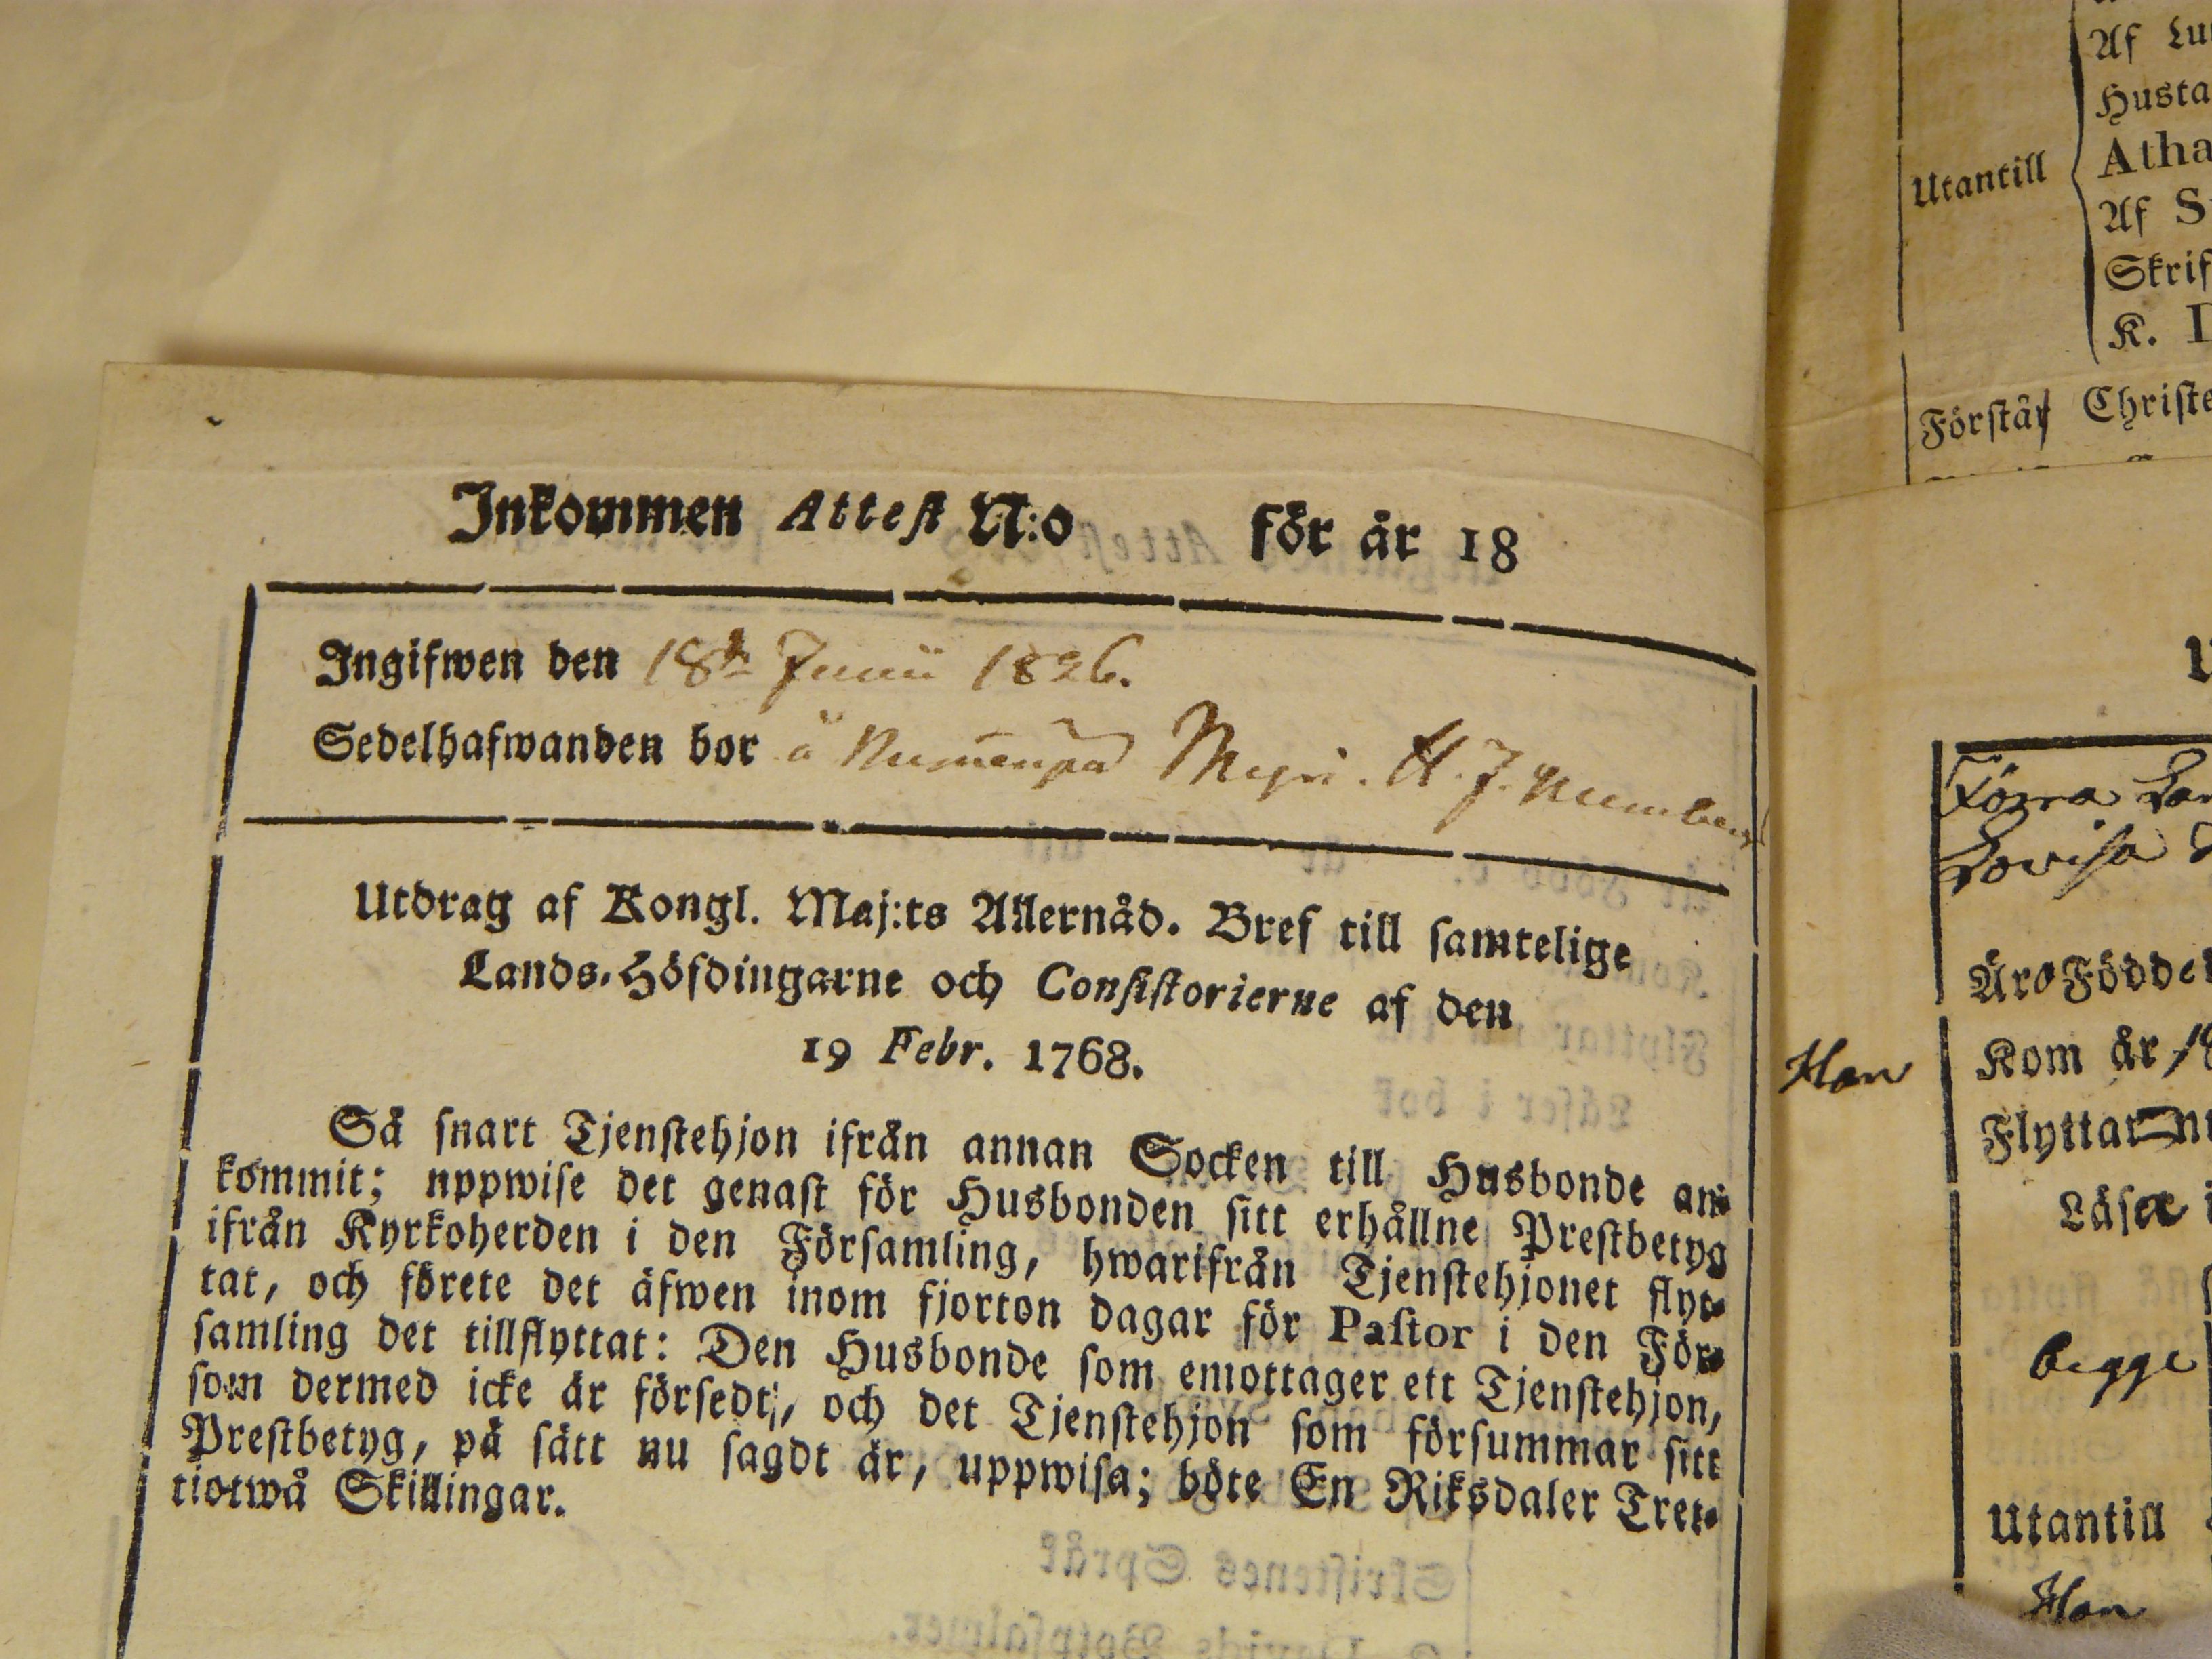 Inkommen Attest N:o för år 18
Ingifwen den 18de Junii 1826.
Sedelhafwanden bor å Myri. H. J.
Utdrag af Kongl. Maj:ts Allernåd. Bref till samtelige
Lands-Höfdingarne och Consistorierne af den
19 Febr. 1768.
Så snart Tjenstehjon ifrån annan Socken till Husbonde an-
kommit; uppwise det genast för Husbonden sitt erhållne Prestbetyg
ifrån Kyrkoherden i den Församling, hwarifrån Tjenstehjonet flyt-
tat, och förete det äfwen inom fjorton dagar för Pastor i den För-
samling det tillflyttat: Den Husbonde som emottager ett Tjenstehjon,
som dermed icke är försedt, och det Tjenstehjon som försummar sitt
Prestbetyg, på sätt nu sagdt är, uppwisa; böte En Riksdaler Tret-
tiotwå Skillingar.
Af Lu
Husta
Utantill
Atha
Af S
Skrif
K. D
Förstår Christe
Förra
Lovisa
Äro Födde
Han
Kom år 18
Flyttar nu
Läser i
begge
Utantill
Han